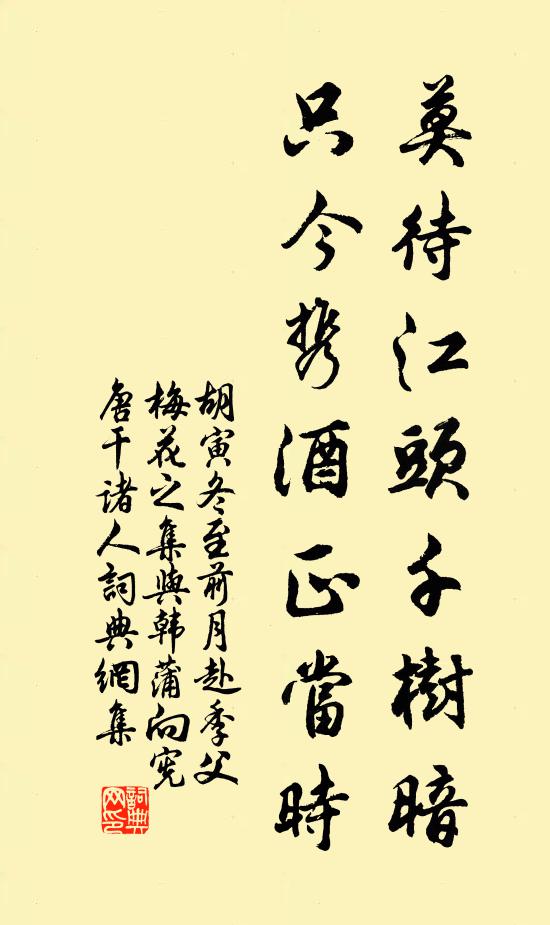 莫待江頭千樹暗
只今携酒正當時
胡寅冬至前月赴季父
梅花之集與韩蒲向宪
唐干諸人詞典網集
詞典网印